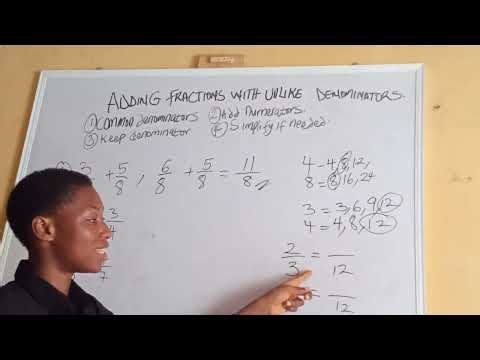 ADDING FRACTIONS WITH UNLIKE DENOMINATORS.
① Common denominators ② Add Numerators.
③ Keep denominator ④ Simplify if needed.
3 + 5/8, 6/8 + 5/8 = 11/8
4 - 4, 8, 12,
8 = 8, 16, 24
3 = 3, 6, 9, 12
4 = 4, 8, 12
3/4
2/3 = /12
7
= /12